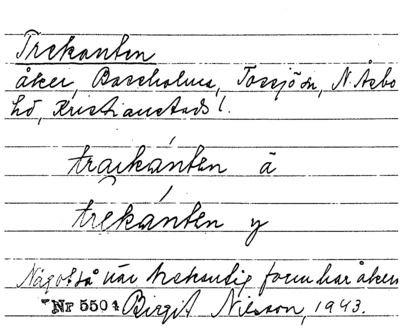 Trekanten
åker, Boseholma, Tossjö sn, N. Åsbo
hd, Kristianstads l.
traikánten ä
trekánten y
Något så när trekantig form har åkern
Nr 5504 Birgit Nilsson, 1943.